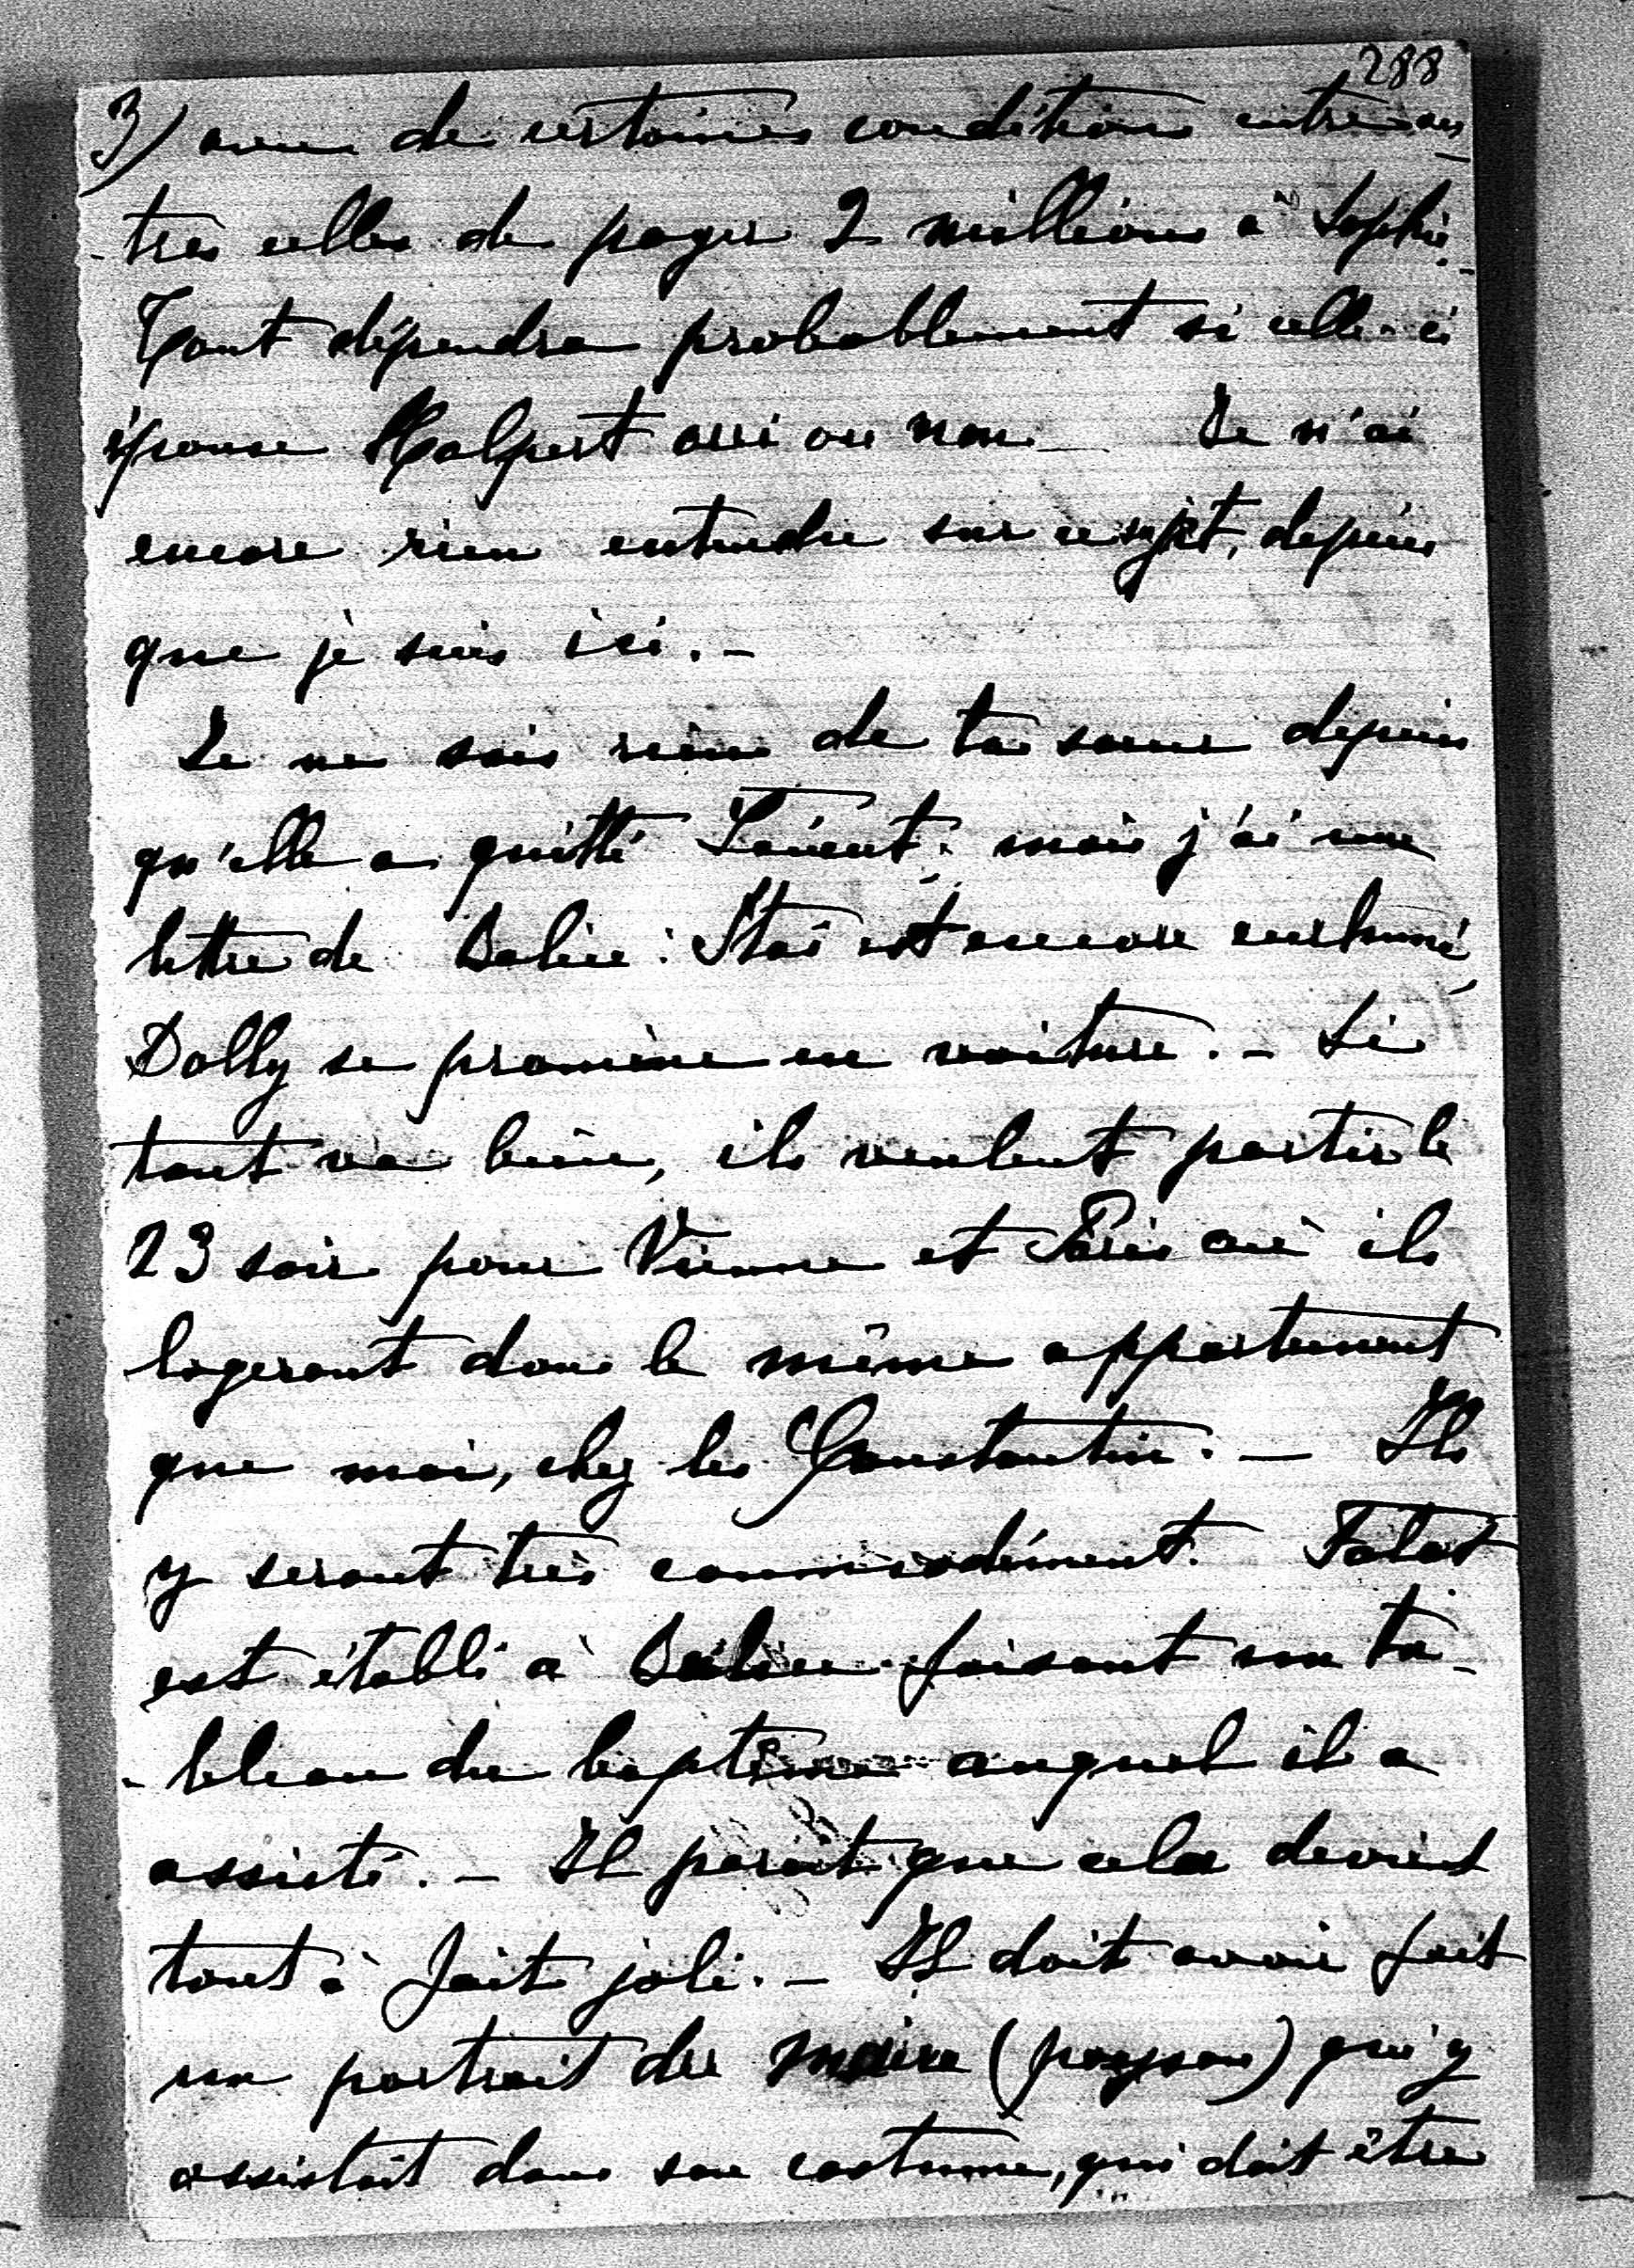 288
3) avec de certaines conditions entre au-
-tres celles de payer 2 millions à Sophie.-
Tout dépendra probablement si celle-ci
épouse Halpert oui ou non — Je n'ai
encore rien entendu sur ce sujet, depuis
que je suis ici. -
Je ne sais rien de ta soeur depuis
qu'elle a quitté mais j'ai une
lettre de : est encore enrhumé,
Dolly se promène en voiture. - Si
tout va bien, ils veulent partir le
23 soir pour Vienne et Paris où ils
logeront dans le même appartement
que moi, chez les Constantin. — Ils
y seront très commodément.
est établi à faisant son ta-
-bleau du baptême auquel il a
assisté. - Il parait que cela devient
tout à fait joli. - Il doit avoir fait
un portrait du maire (paysan) qui y
assistait dans son costume, qui doit être